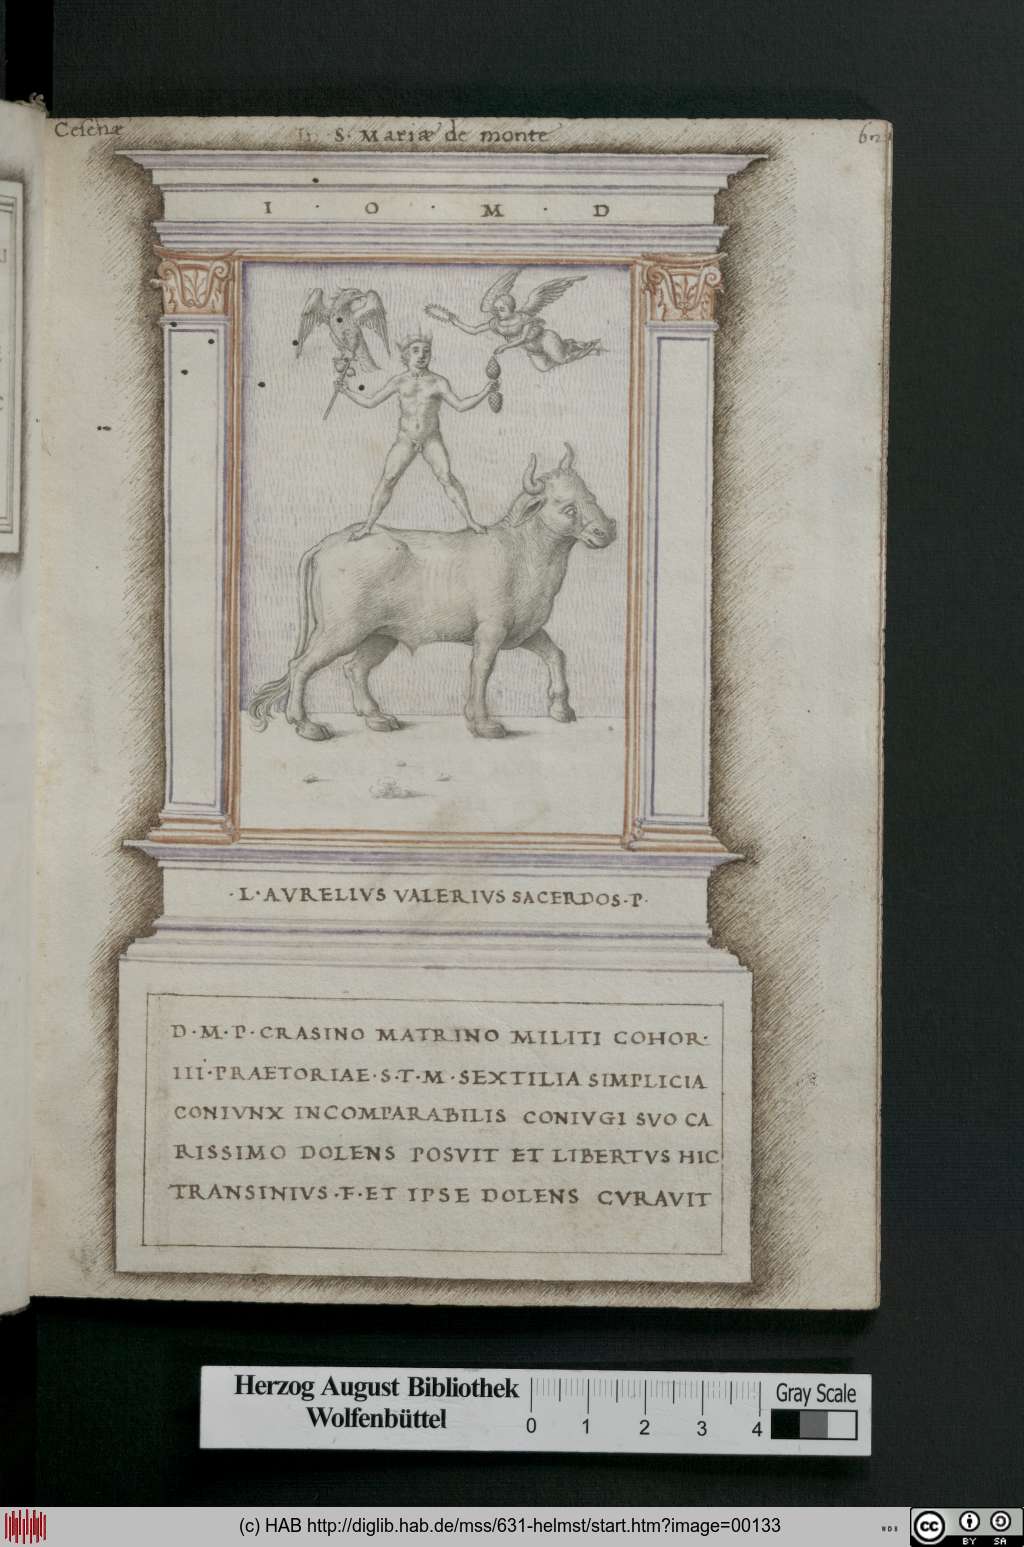 Cesenæ
In S. Mariæ de monte
I · O · M · D
·L·AVRELIVS VALERIVS SACERDOS·P·
D·M·P·CRASINO MATRINO MILITI COHOR·
III·PRAETORIAE·S·T·M·SEXTILIA SIMPLICIA
CONIVNX INCOMPARABILIS CONIVGI SVO CA
RISSIMO DOLENS POSVIT ET LIBERTVS HIC
TRANSINIVS·F·ET IPSE DOLENS CVRAVIT
Herzog August Bibliothek
Wolfenbüttel
0 1 2 3 4
Gray Scale
(c) HAB http://diglib.hab.de/mss/631-helmst/start.htm?image=00133
WDB
cc
BY SA